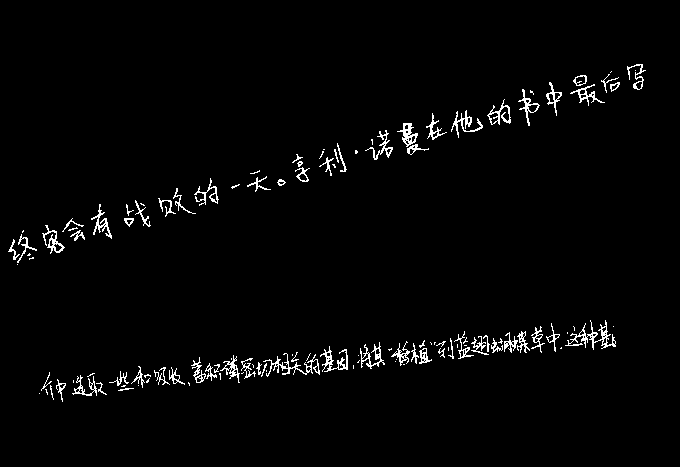 终究会有战败的一天。亨利·诺曼在他的书中最后写
种选取一些和吸收、蓄积磷密切相关的基因,将其“移植”到蓝翅蝴蝶草中,这种基